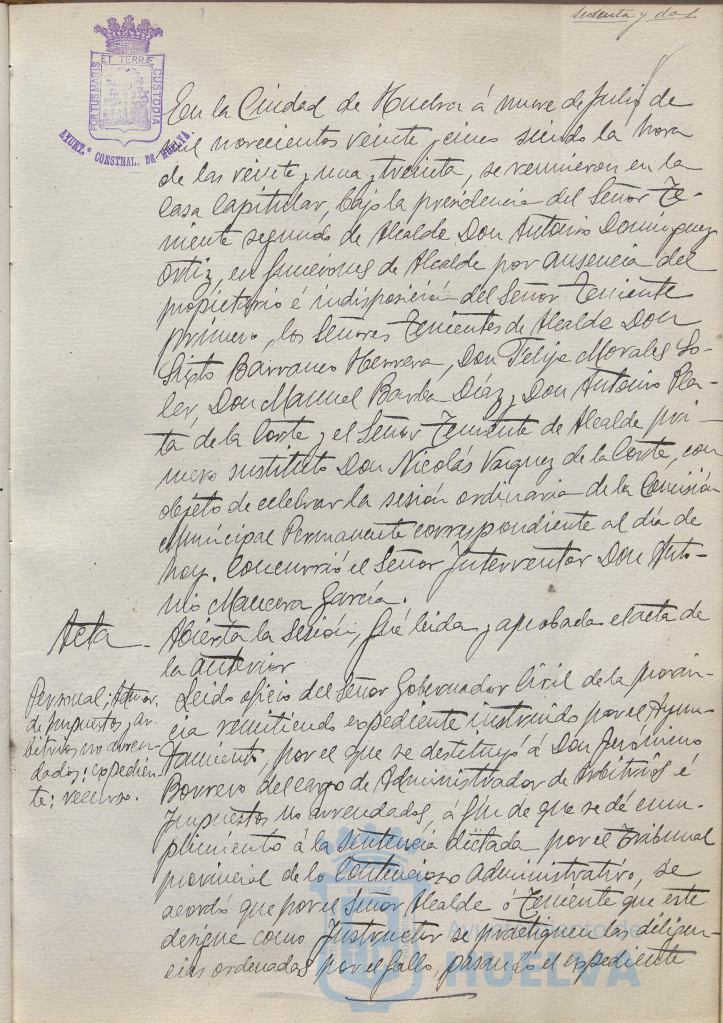 sesenta y dos
PORTUS MARIS ET TERRÆ CUSTODIA
AYUNT.º CONSTNAL. DE HUELVA
En la Ciudad de Huelva á nueve de Julio de
mil novecientos veinte y cinco siendo la hora
de las veinte y una y treinta, se reunieron en la
Casa Capitular, bajo la presidencia del Señor Te-
niente segundo de Alcalde Don Antonio Dominguez
Ortiz, en funciones de Alcalde por ausencia del
propietario é indisposición del Señor Teniente
primero, los Señores Tenientes de Alcalde Don
Sixto Barranco Herrera, Don Felipe Morales So-
ler, Don Manuel Barba Díaz, Don Antonio Pla-
ta de la Corte y el Señor Teniente de Alcalde pri-
mero sustituto Don Nicolás Vazquez de la Corte, con
objeto de celebrar la sesión ordinaria de la Comisión
Municipal Permanente correspondiente al día de
hoy. Concurrió el Señor Interventor Don Anto-
nio Mancera García.
Acta - Abierta la Sesión, fué leida y aprobada el acta de
la anterior
Personal; Admor.
de impuestos y ar-
bitrios no arren-
dados; expedien-
te; recurso.
Leido oficio del Señor Gobernador Civil de la provin-
cia remitiendo expediente instruido por el Ayun-
tamiento, por el que se destituyó á Don Jerónimo
Borrero del cargo de Administrador de Arbitrios é
Impuestos no arrendados, á fin de que se dé cum-
plimiento á la sentencia dictada por el Tribunal
provincial de lo Contencioso Administrativo, se
acordó que por el Señor Alcalde ó Teniente que este
designe como Instructor se practiquen las diligen-
cias ordenadas por el fallo, pasando el expediente
Ayuntamiento de
HUELVA